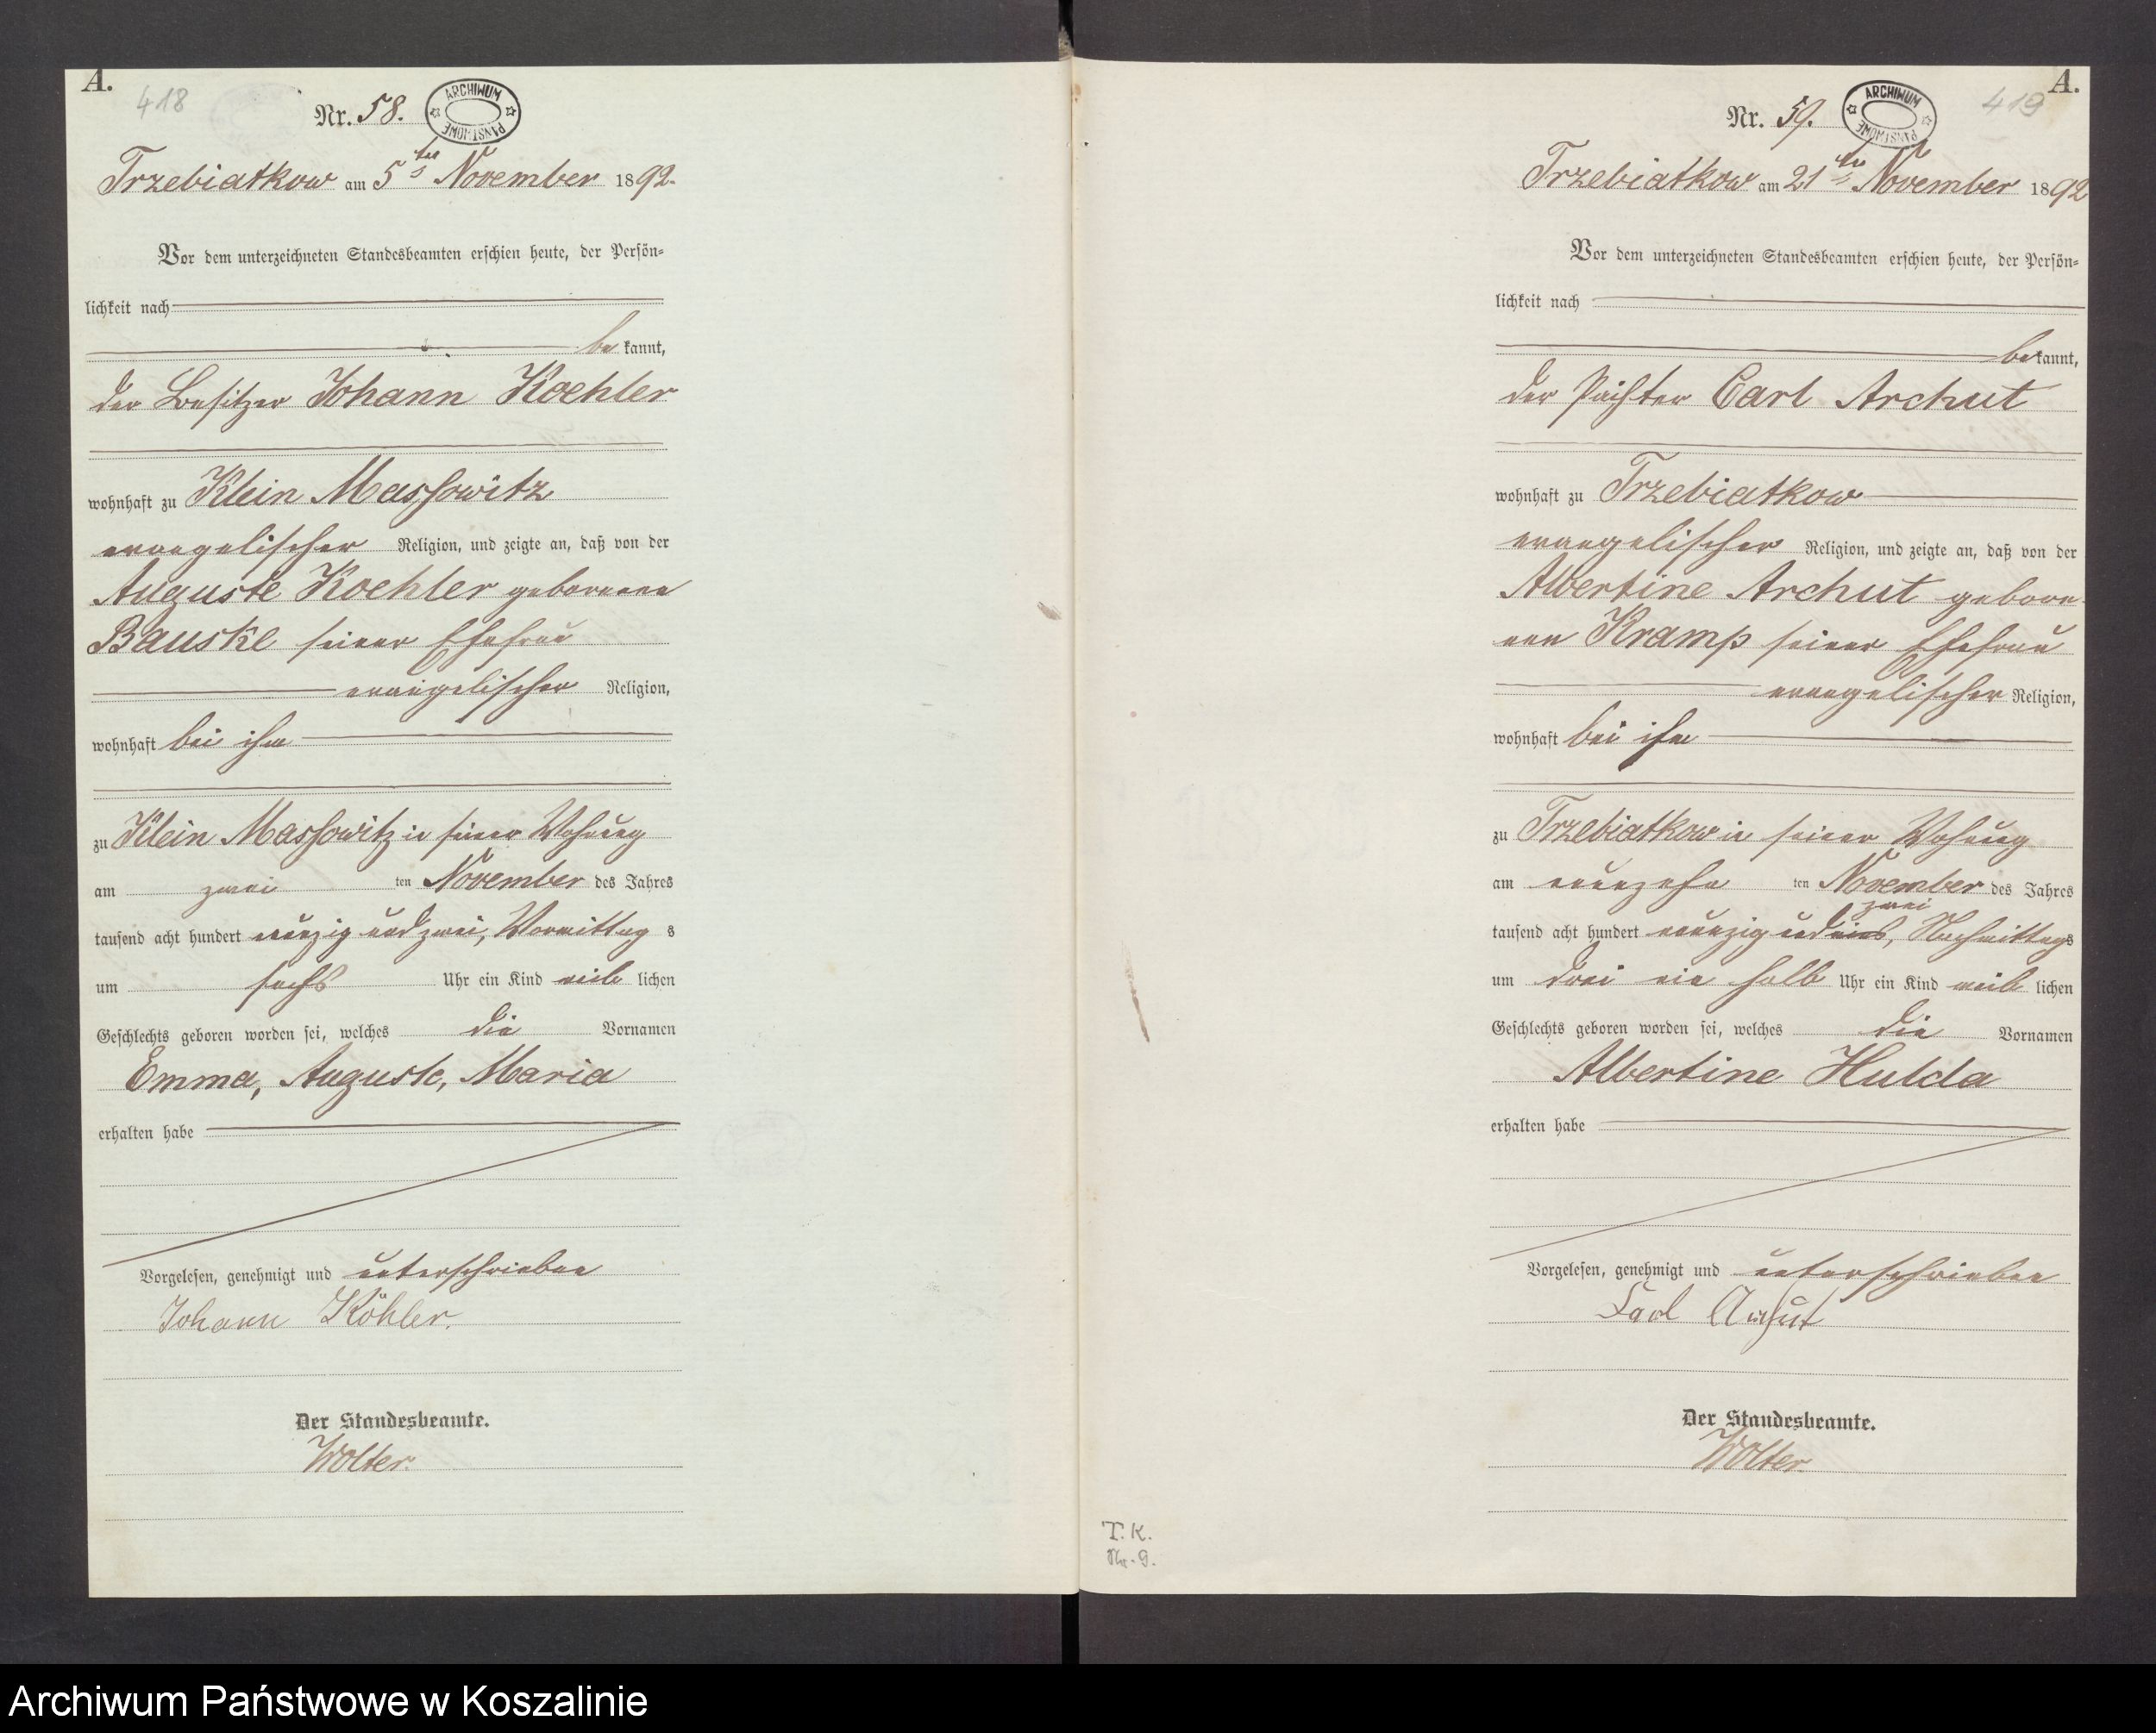 A.
418
Nr. 58.
ARCHIWUM PAŃSTWOWE
Trzebiatkow am 5ten November 1892.
Vor dem unterzeichneten Standesbeamten erschien heute, der Persön-
lichkeit nach
be kannt,
der Besitzer Johann Koehler
wohnhaft zu Klein Massowitz
evangelischer Religion, und zeigte an, daß von der
Auguste Koehler geborenen
Bauske seiner Ehefrau
evangelischer Religion,
wohnhaft bei ihm
zu Klein Massowitz in seiner Wohnung
am zwei ten November des Jahres
tausend acht hundert neunzig und zwei, Vormittag s
um sechs Uhr ein Kind weib lichen
Geschlechts geboren worden sei, welches die Vornamen
Emma, Auguste, Maria
erhalten habe
Vorgelesen, genehmigt und unterschrieben
Johann Köhler.
Der Standesbeamte.
Wolter.
A.
419
Nr. 59.
ARCHIWUM PAŃSTWOWE
Trzebiatkow am 21ten November 1892
Vor dem unterzeichneten Standesbeamten erschien heute, der Persön-
lichkeit nach
bekannt,
der Pächter Carl Archut
wohnhaft zu Trzebiatkow
evangelischer Religion, und zeigte an, daß von der
Albertine Archut gebore-
nen Kramp seiner Ehefrau
evangelischer Religion,
wohnhaft bei ihm
zu Trzebiatkow in seiner Wohnung
am neunzehn ten November des Jahres
zwei
tausend acht hundert neunzig und eins, Nachmittags
um drei ein halb Uhr ein Kind weib lichen
Geschlechts geboren worden sei, welches die Vornamen
Albertine Hulda
erhalten habe
Vorgelesen, genehmigt und unterschrieben
Carl Archut
Der Standesbeamte.
Wolter.
T. K.
Nr. 9.
Archiwum Państwowe w Koszalinie